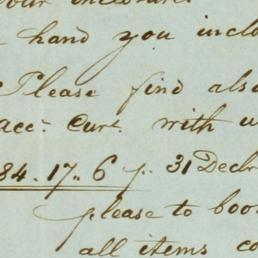 your inclosure
hand you inclo
Please find also
acc: Curt. with u
84. 17.. 6 p. 31 Decbr
please to boo
all items co